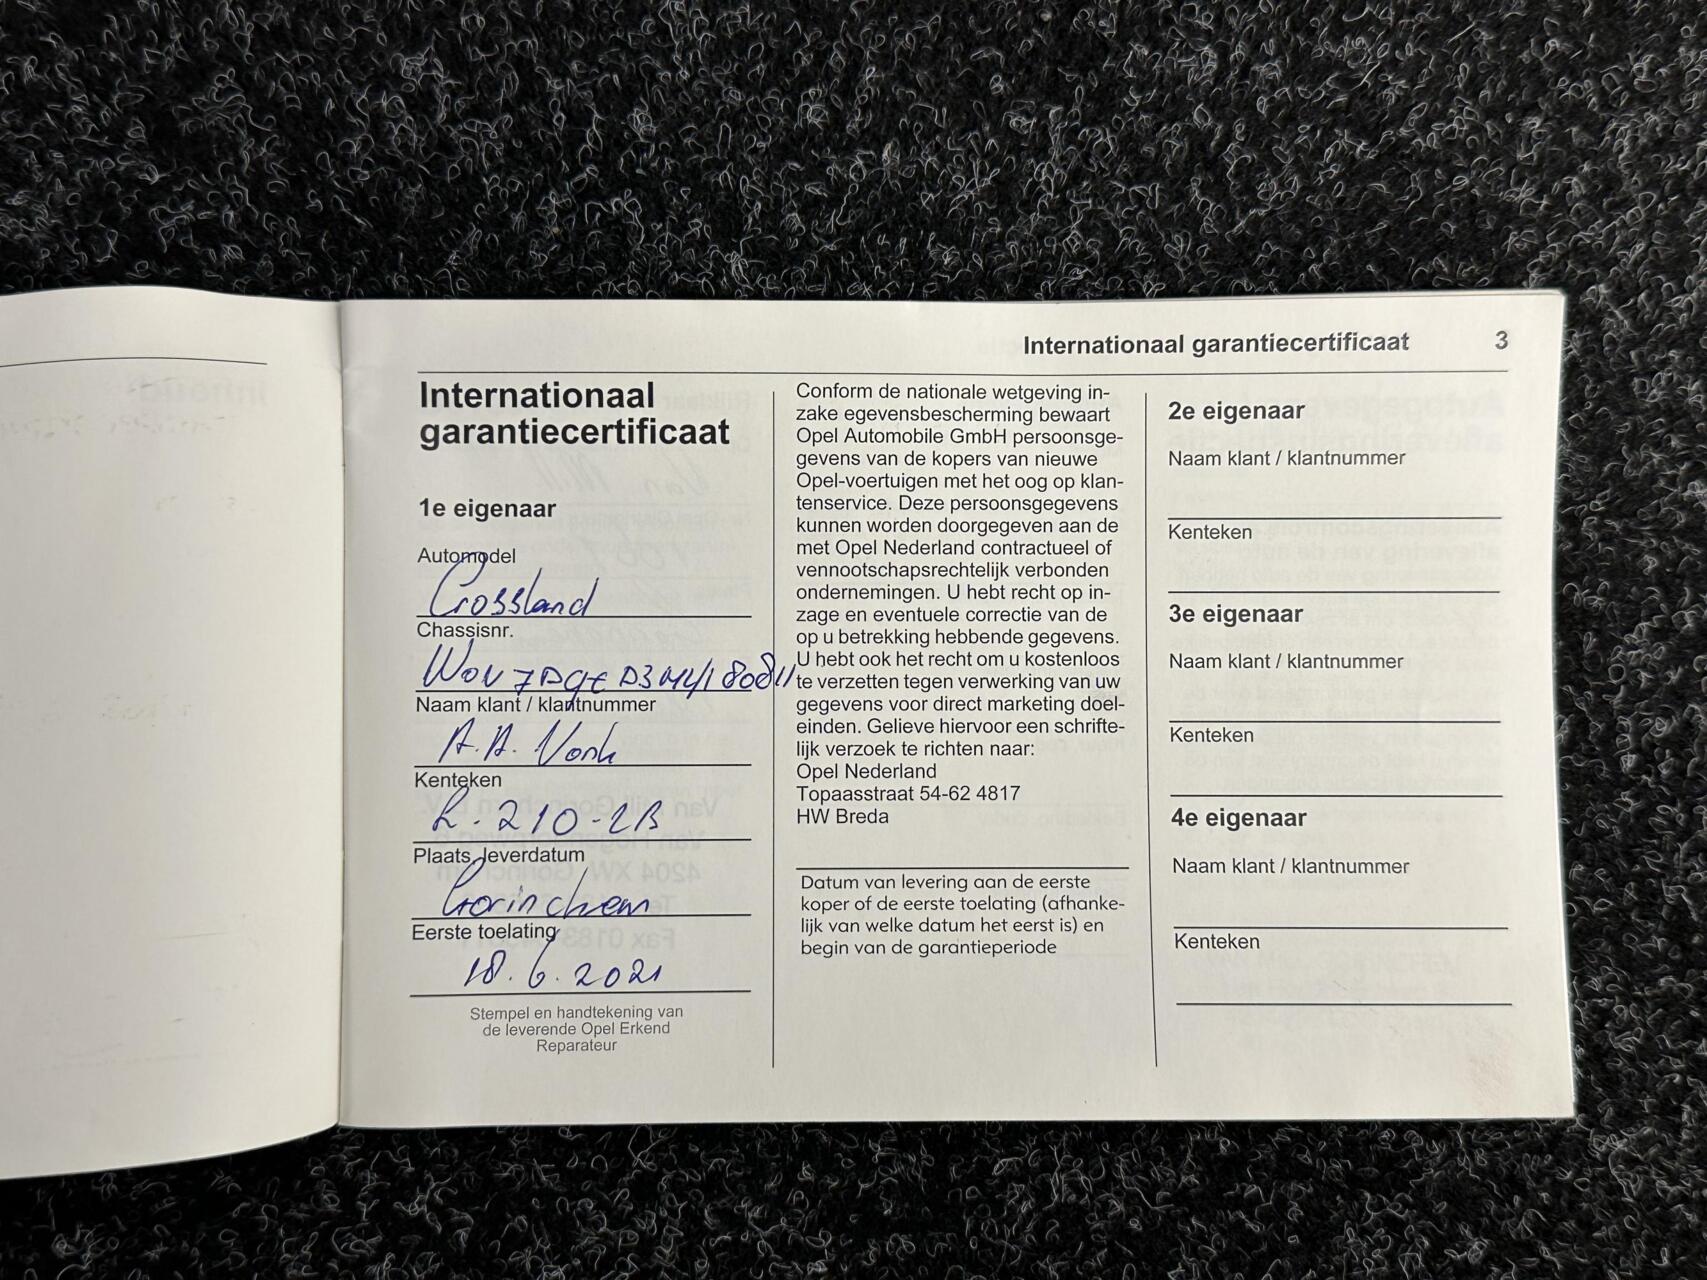 Internationaal garantiecertificaat 3
Internationaal
garantiecertificaat
1e eigenaar
Automodel
Crossland
Chassisnr.
Naam klant / klantnummer
A.A. Vonk
Kenteken
210-
Plaats, leverdatum
Gorinchem
Eerste toelating
18.6.2021
Stempel en handtekening van
de leverende Opel Erkend
Reparateur
Conform de nationale wetgeving in-
zake egevensbescherming bewaart
Opel Automobile GmbH persoonsge-
gevens van de kopers van nieuwe
Opel-voertuigen met het oog op klan-
tenservice. Deze persoonsgegevens
kunnen worden doorgegeven aan de
met Opel Nederland contractueel of
vennootschapsrechtelijk verbonden
ondernemingen. U hebt recht op in-
zage en eventuele correctie van de
op u betrekking hebbende gegevens.
U hebt ook het recht om u kostenloos
te verzetten tegen verwerking van uw
gegevens voor direct marketing doel-
einden. Gelieve hiervoor een schrifte-
lijk verzoek te richten naar:
Opel Nederland
Topaasstraat 54-62 4817
HW Breda
Datum van levering aan de eerste
koper of de eerste toelating (afhanke-
lijk van welke datum het eerst is) en
begin van de garantieperiode
2e eigenaar
Naam klant / klantnummer
Kenteken
3e eigenaar
Naam klant / klantnummer
Kenteken
4e eigenaar
Naam klant / klantnummer
Kenteken